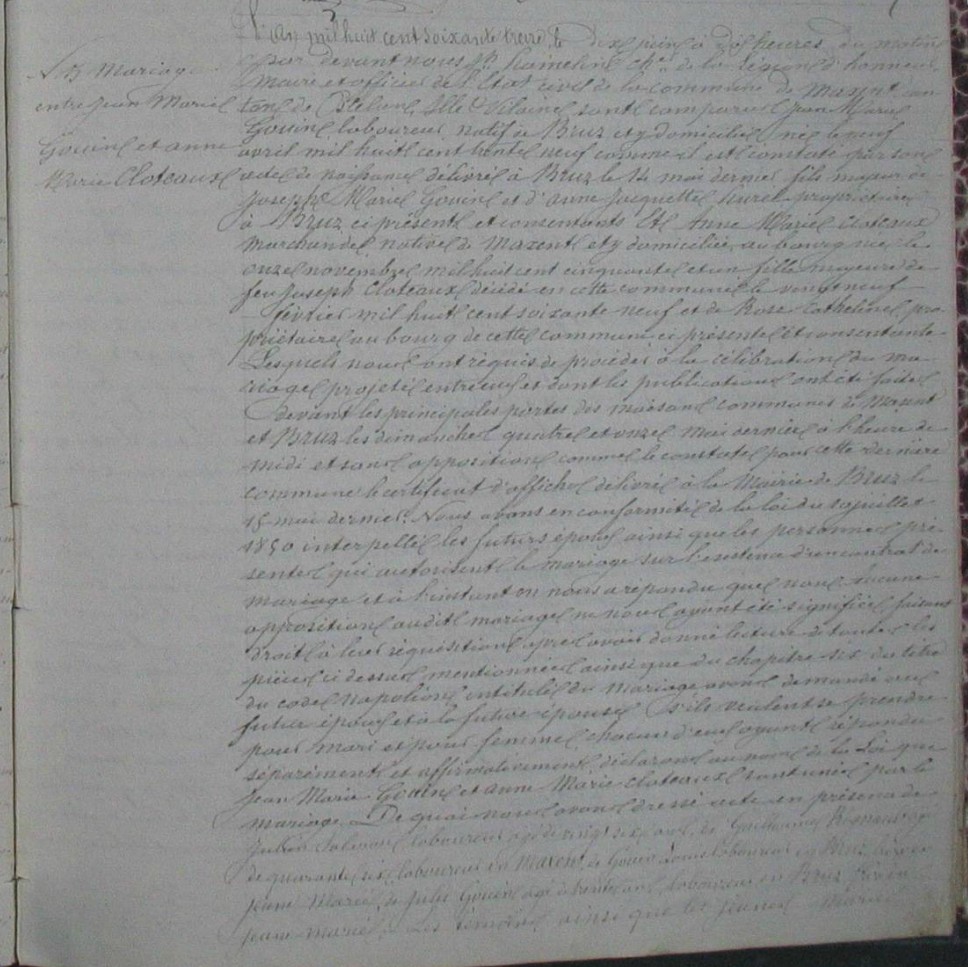 mariage
entre Jean Marie
Gouin et anne
Marie Cloteaux
L'an mil huit cent soixante treize, le dix juin à heures du matin
par devant nous de la Légion d'honneur
Maire et officier de l'Etat civil de la commune de Maxent can-
ton de Plélan, Ille & Vilaine, sont comparus Jean Marie
Gouin laboureur natif à Bruz et y domicilié, né le neuf
avril mil huit cent trente neuf comme il est constaté par son
acte de naissance délivré à Bruz le 14 mai dernier fils majeur de
Joseph Marie Gouin et d'anne Jacquette propriétaires
à Bruz ci présents et consentants Et Anne Marie Cloteaux
marchande native de Maxent et y domiciliée au bourg née le
onze novembre mil huit cent cinquante et un fille majeure de
feu Joseph Cloteaux décédé en cette commune le vingt neuf
février mil huit cent soixante neuf et de Rose Cathelinel pro-
priétaire au bourg de cette commune ci présente et consentante
Lesquels nous ont requis de procéder à la célébration du ma-
riage projeté entre eux et dont les publications ont été faites
devant les principales portes des maisons communes de Maxent
et Bruz les dimanches quatre et onze Mai dernier à l'heure de
midi et sans opposition comme le constate pour cette dernière
commune le certificat d'affiche délivré à la Mairie de Bruz le
15 mai dernier. Nous avons en conformité de la loi du 10 juillet
1850 interpellé les futurs époux ainsi que les personnes pré-
sentes qui autorisent le mariage sur l'existence d'un contrat de
mariage et à l'instant on nous a répondu que non. Aucune
opposition audit mariage ne nous ayant été signifiée, faisant
droit à leur réquisition après avoir donné lecture de toutes les
pièces ci dessus mentionnées ainsi que du chapitre six du titre
du code Napoléon intitulé du Mariage avons demandé au
futur époux et à la future épouse s'ils veulent se prendre
pour mari et pour femme, chacun d'eux ayant répondu
séparément et affirmativement, déclarons au nom de la Loi que
Jean Marie Gouin et anne Marie Cloteaux sont unis par le
mariage. De quoi nous avons dressé acte en présence de
Julien laboureur âgé de vingt six ans, de Guillaume
de quarante six laboureur en Maxent, de Gouin Louis laboureur en Bruz
jeune Marié, de Julie Gouin âgé de trente ans laboureur en Bruz
jeune marié. Les témoins ainsi que les jeunes Mariés